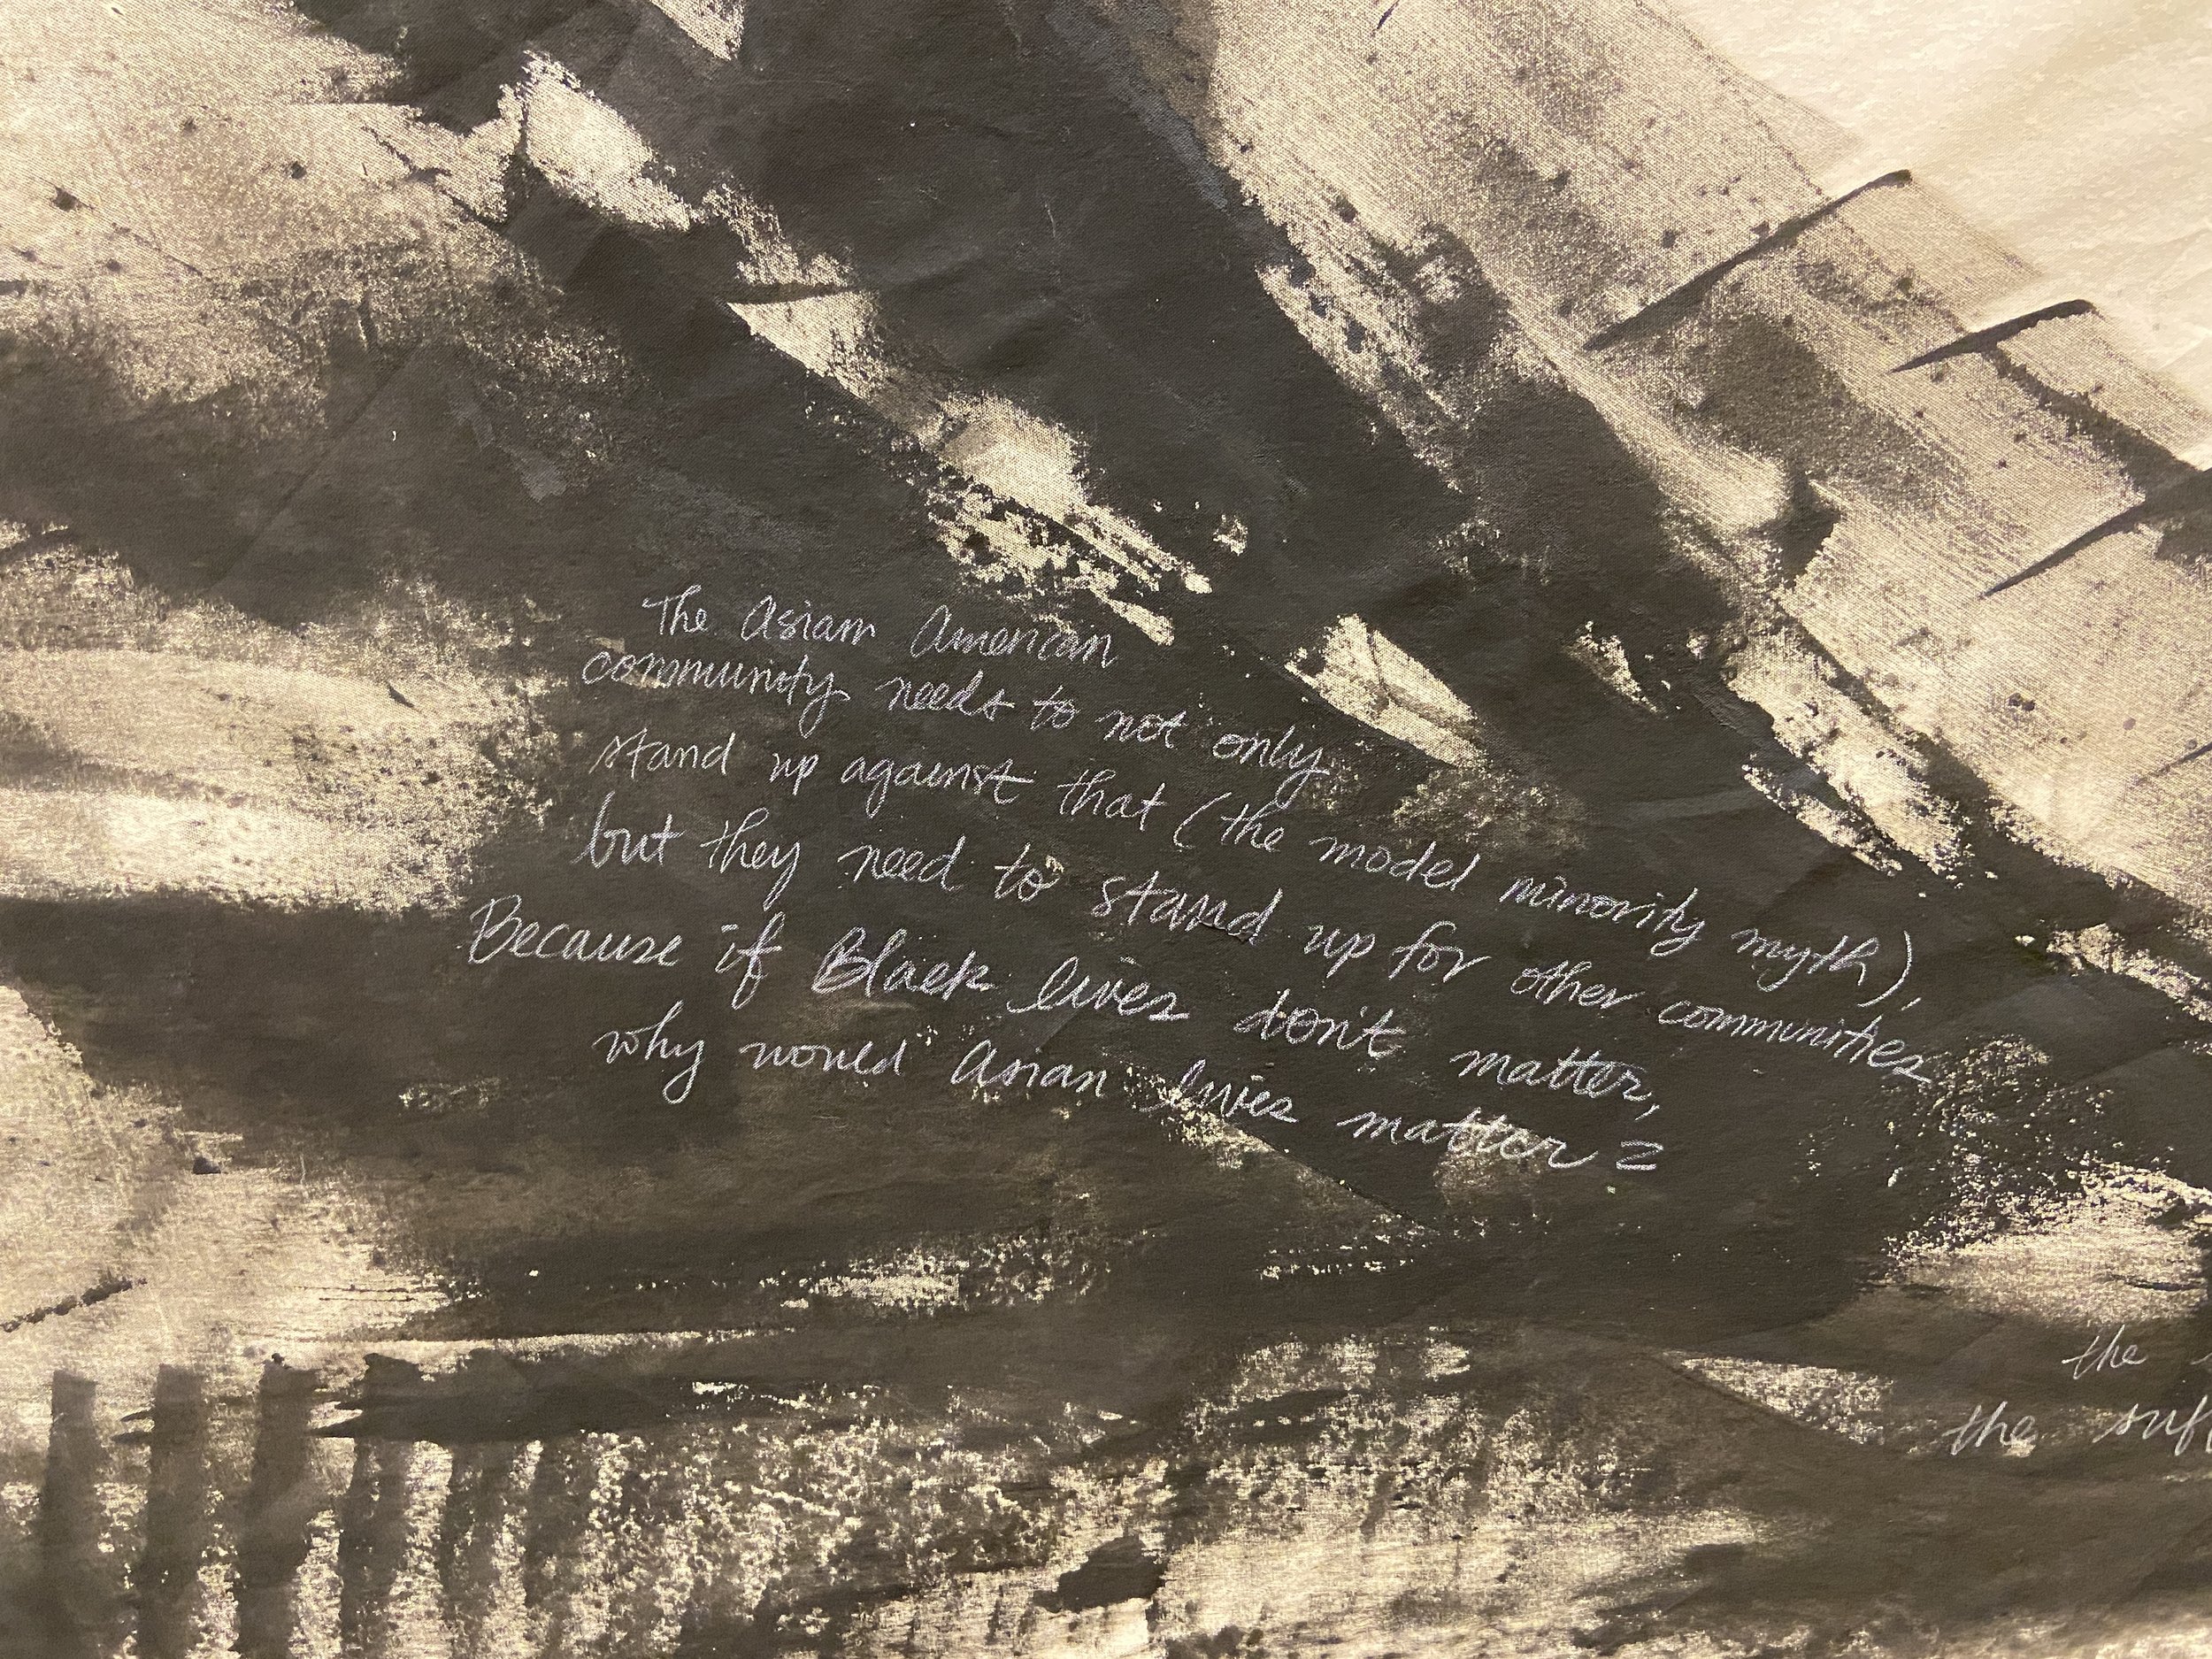 The Asian American
community needs to not only
stand up against that (the model minority myth),
but they need to stand up for other communities
Because if Black lives don't matter,
why would Asian lives matter?
the
the